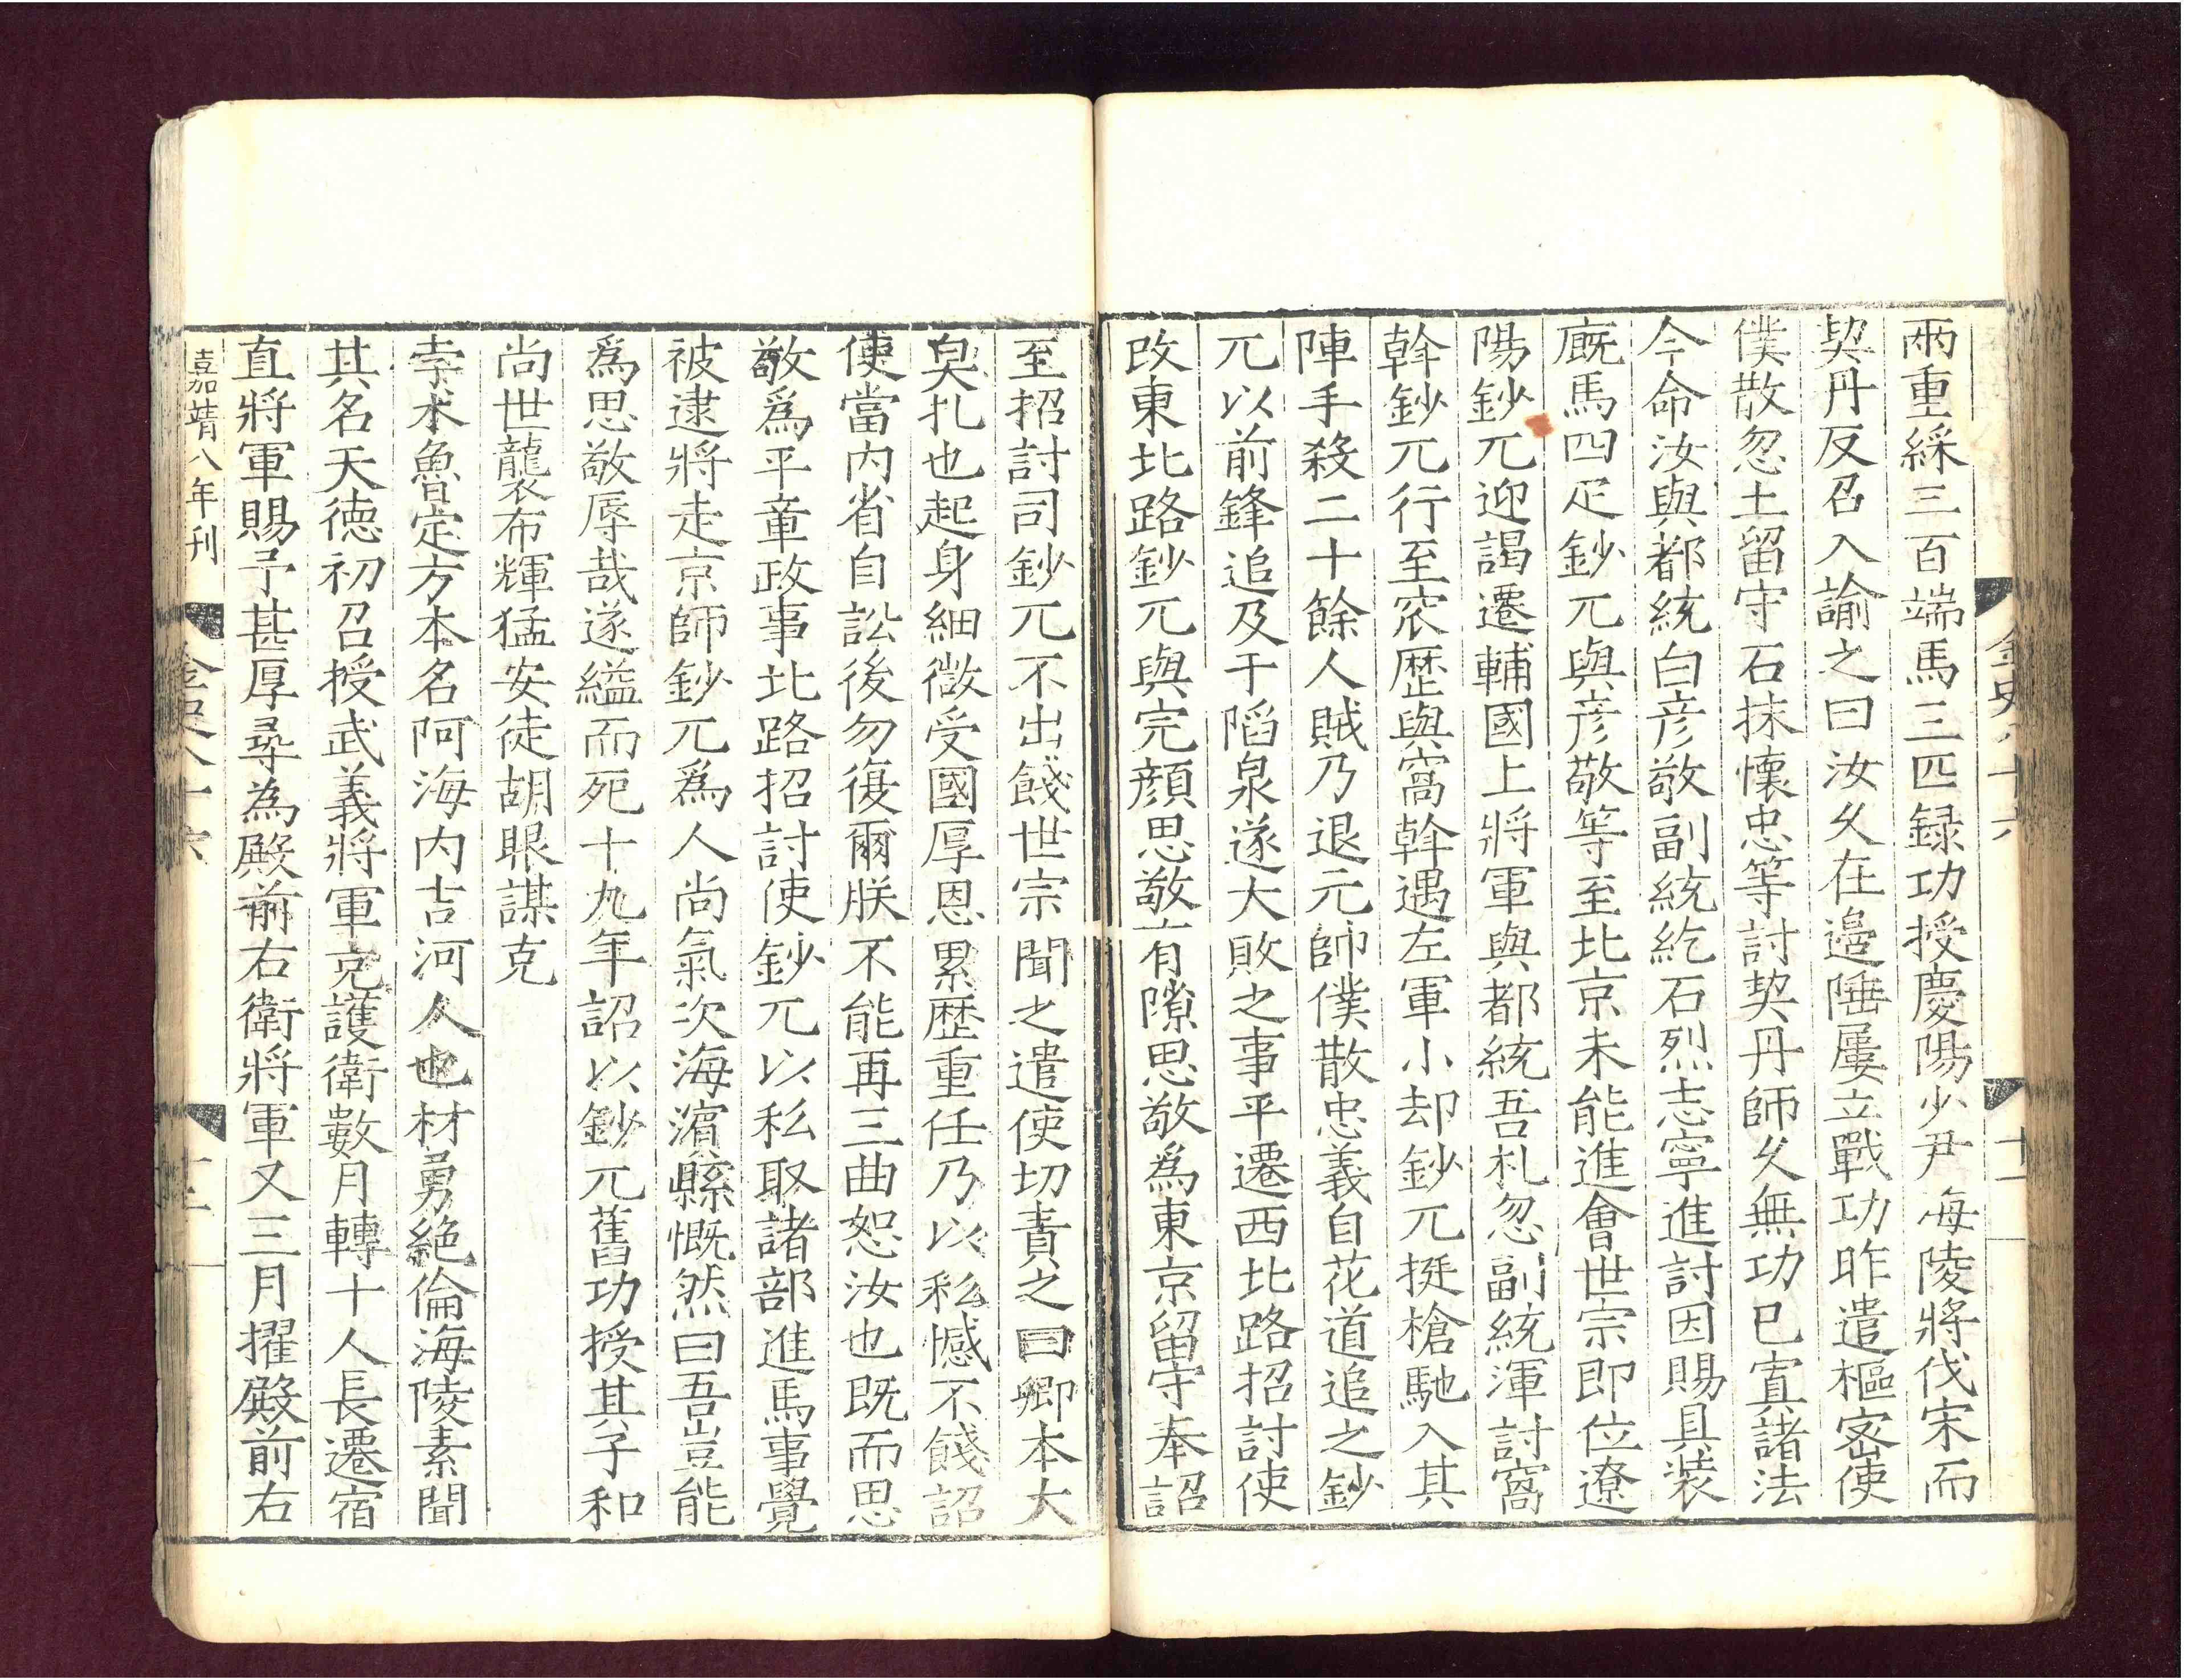 兩重綵三百端馬三匹録功授慶陽少尹海陵將伐宋而
契丹反召入諭之曰汝久在邉陲屢立戰功昨遣樞宻使
僕散忽土留守石抹懷忠等討契丹師久無功已寘諸法
今命汝與都統白彦敬副統紇石烈志寧進討因賜具装
廐馬四疋鈔兀與彦敬等至北京未能進會世宗即位遼
陽鈔兀迎謁遷輔國上將軍與都統吾札忽副統渾討窩
斡鈔兀行至窊歷與窩斡遇左軍小却鈔兀挺槍馳入其
陣手殺二十餘人賊乃退元帥僕散忠義自花道追之鈔
兀以前鋒追及于䧟泉遂大敗之事平遷西北路招討使
改東北路鈔兀與完顔思敬有隙思敬爲東京留守奉詔
金史八十六
十一
至招討司鈔兀不出餞世宗聞之遣使切責之曰卿本大
㚖扎也起身細微受國厚恩累歷重任乃以私憾不餞詔
使當内省自訟後勿復爾朕不能再三曲恕汝也既而思
敬爲平章政事北路招討使鈔兀以私取諸部進馬事覺
被逮將走京師鈔兀爲人尚氣次海濵縣慨然曰吾豈能
爲思敬辱哉遂縊而死十九年詔以鈔兀舊功授其子和
尚世襲布輝猛安徒胡眼謀克
孛术魯定方本名阿海内吉河人也材勇絶倫海陵素聞
其名天德初召授武義將軍充護衛數月轉十人長遷宿
直將軍賜予甚厚尋為殿前右衛將軍又三月擢殿前右
嘉靖八年刊
金史八十六
十二